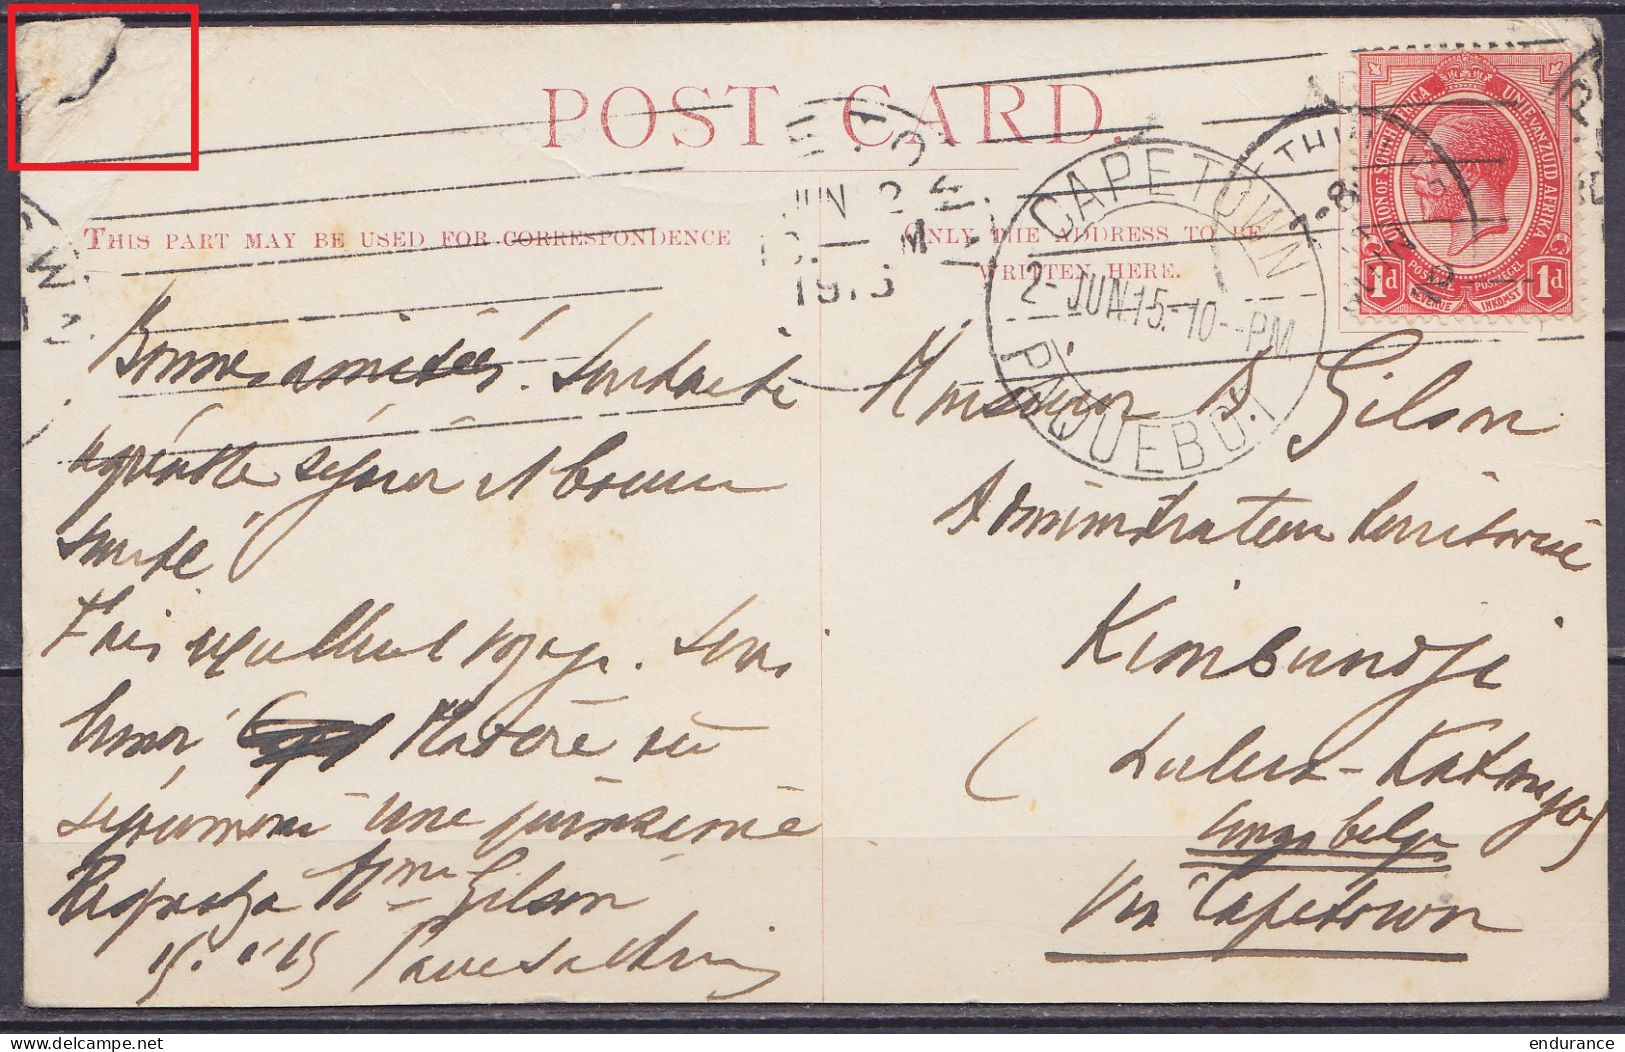 POST CARD.
THIS PART MAY BE USED FOR CORRESPONDENCE
ONLY THE ADDRESS TO BE
WRITTEN HERE.
JUN 2
1915
CAPETOWN
2-JUN.15.-10-PM
PAQUEBOT
UNION OF SOUTH AFRICA
UNIE VAN ZUID AFRIKA
POSTAGE POSTZEGEL
REVENUE INKOMST
1d 1d
Bonnes amitiés. Souhaite
agréable séjour et bonne
santé
Fais excellent voyage. Serai
à Madère où
séjournerai une quinzaine
Respects à Mme Gilson
Monsieur Gilson
Administrateur territorial
Kimbundji
(Lulua-Katanga)
Congo belge
Via Capetown
endurance